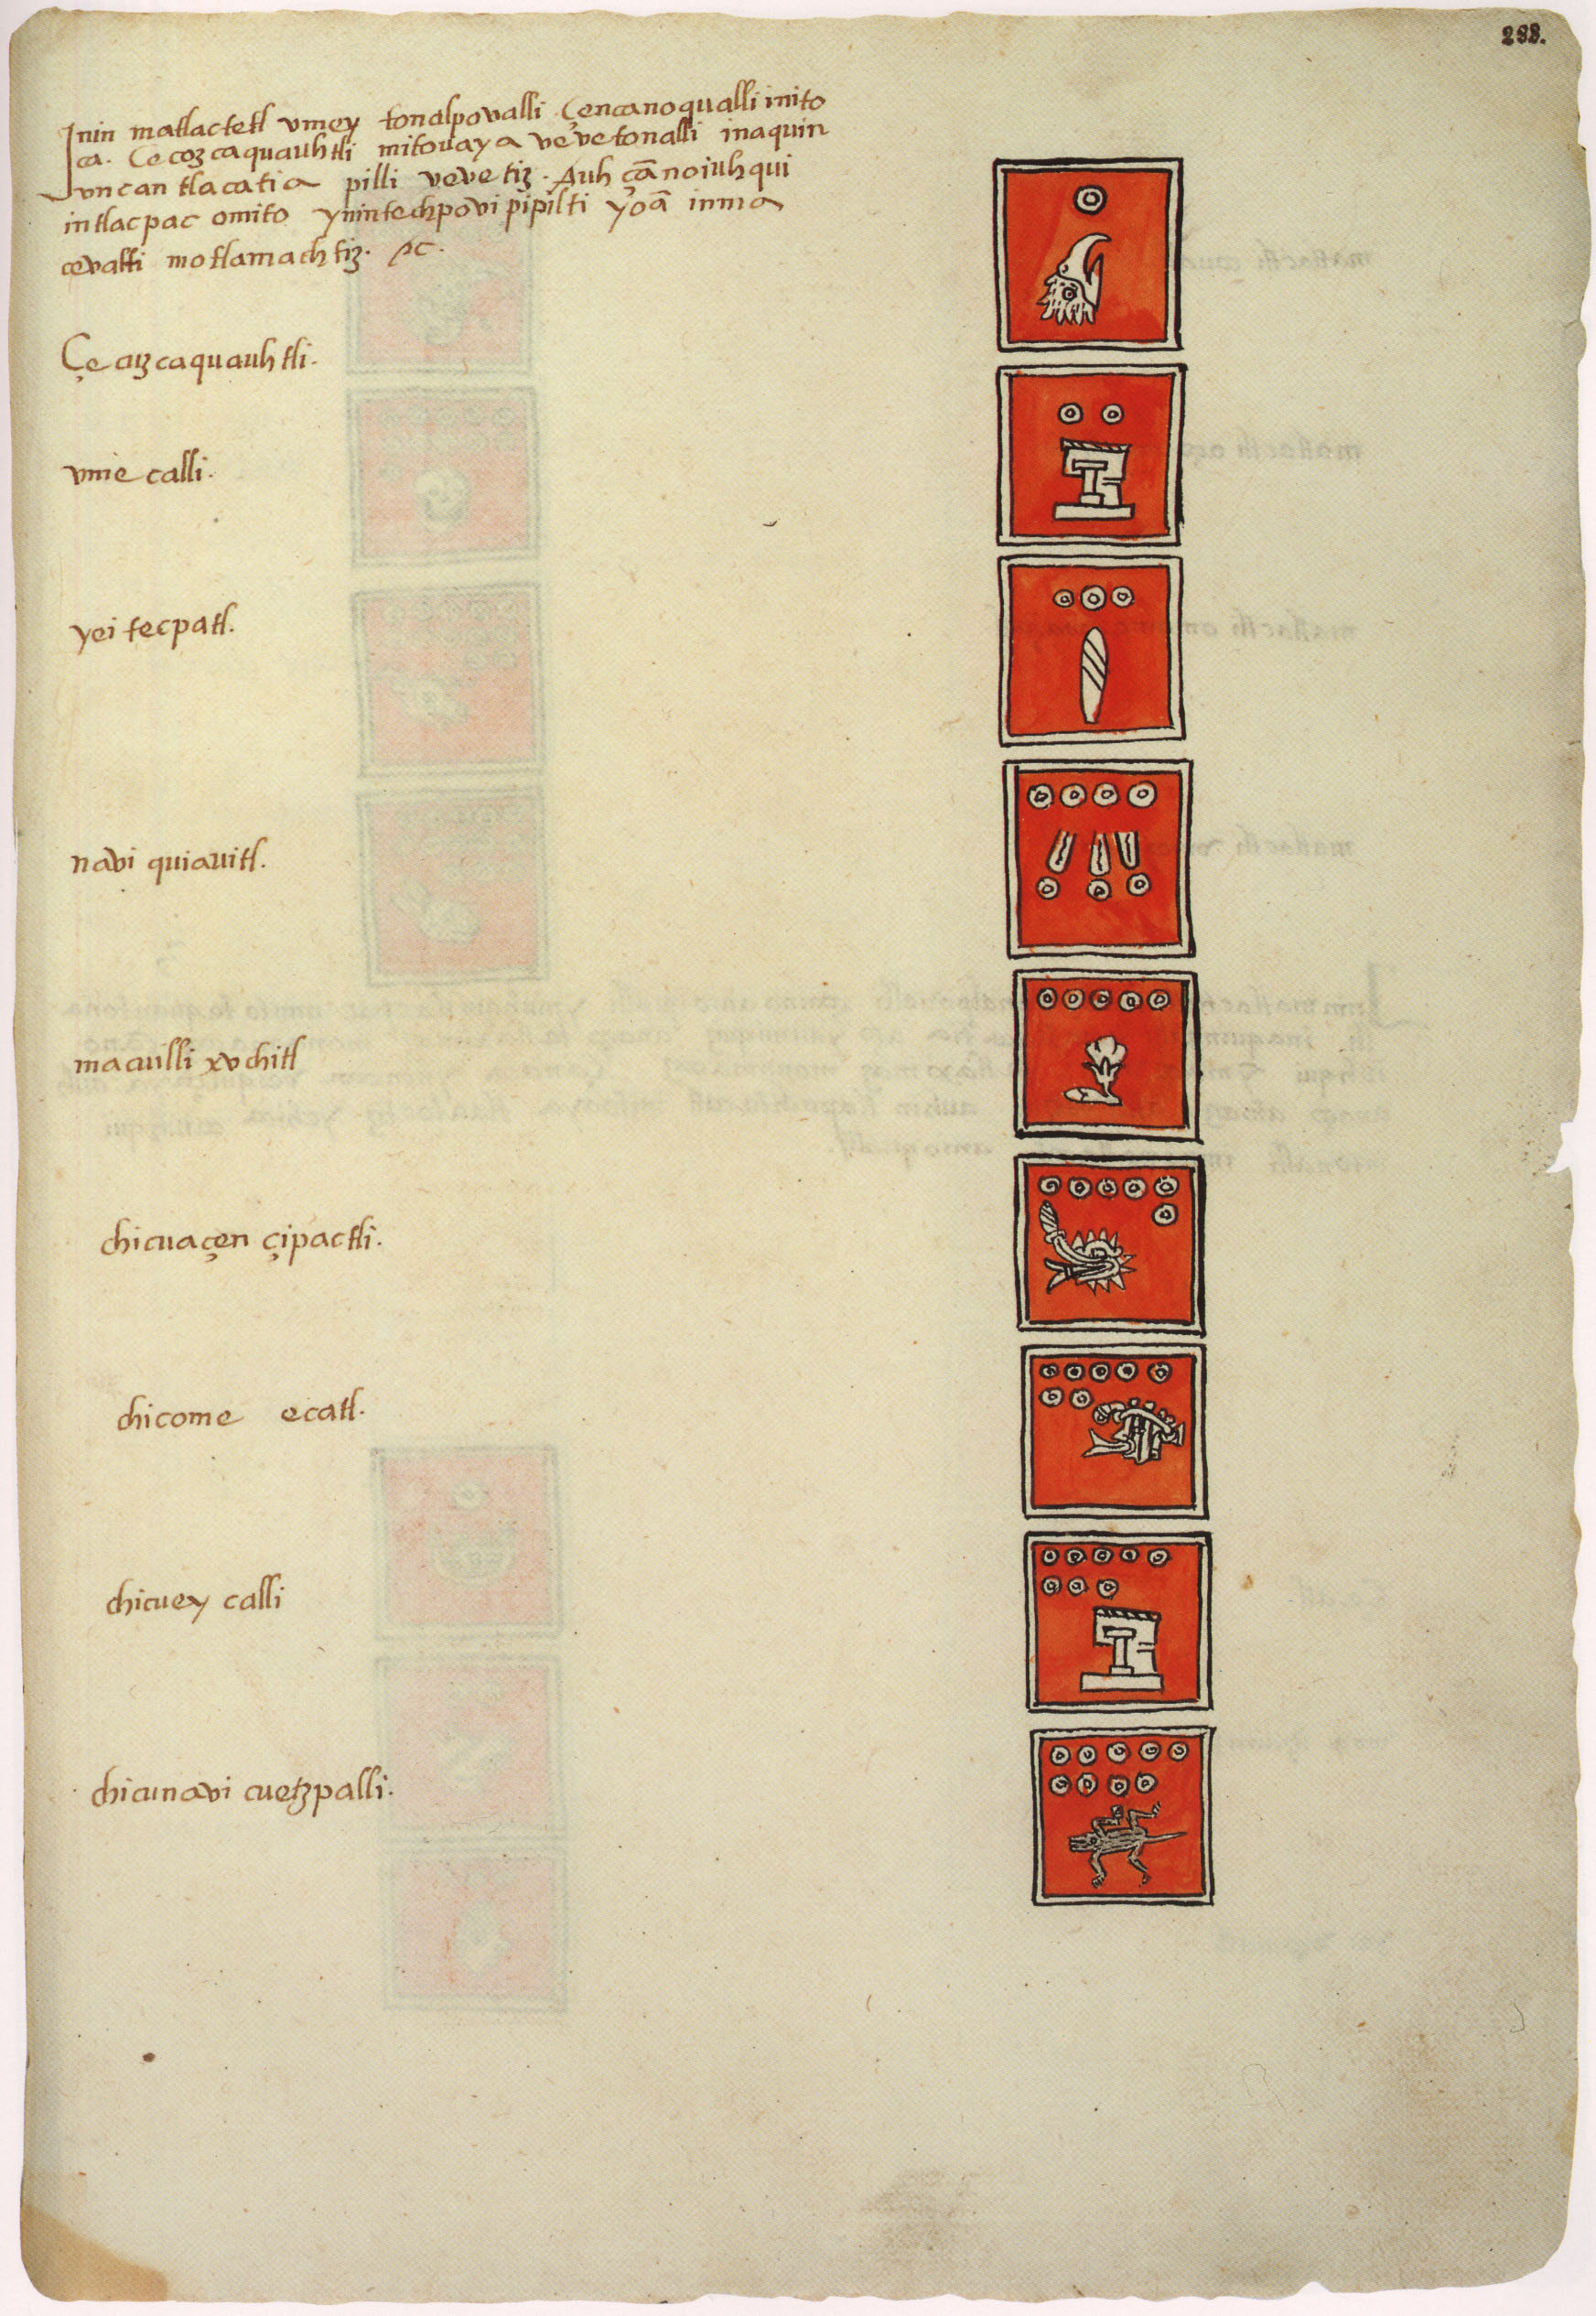 288.
Jnin matlactetl vmey tonalpovalli Çencanoqualli inito
ca. Ce cozcaquauhtli mitouaya vevetonalli inaquin
vncan tlacatia pilli vevetiz. Auh çãnoiuhqui
intlacpac omito ynintechpovi pipilti yoã inma
cevalti motlamachtiz. &c.
Çe cuzcaquauhtli.
vme calli.
yei tecpatl.
navi quiauitl.
macuilli xvchitl
chicuaçen çipactli.
chicome ecatl.
chicuey calli
chicunavi cuetzpalli.